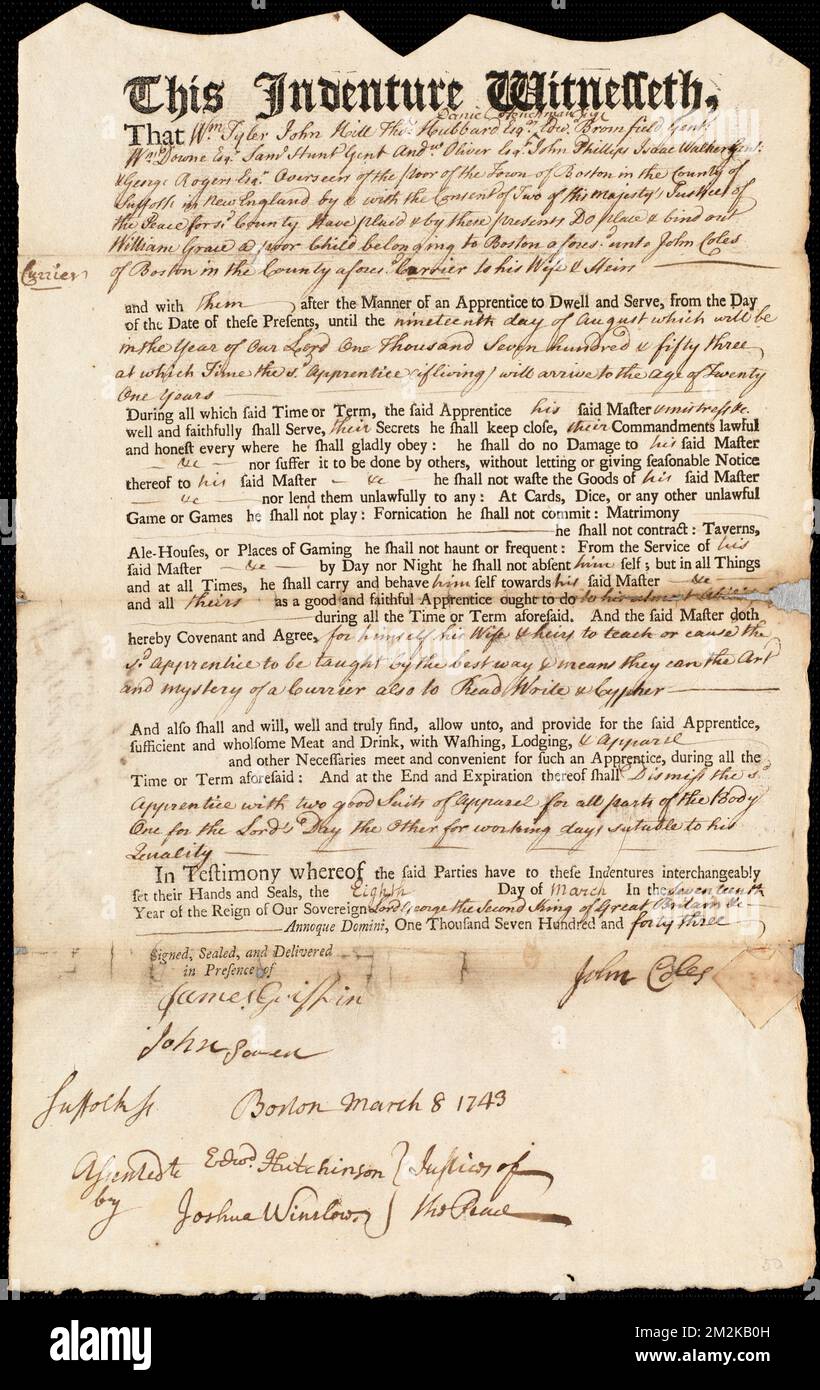 This Indenture Witnesseth,
Daniel Henchman Esqr
That Wm Tyler John Hill Thos Hubbard Esqrs Edwd Bromfield Gent
Wm Downe Esqr Saml Hunt Gent Andw Oliver Esqr John Phillips Isaac Walker Gent
& George Rogers Esqr Overseers of the poor of the Town of Boston in the County of
Suffolk in New England by & with the Consent of Two of his Majestys Justices of
the Peace for sd County Have placed & by these presents Do place & bind out
William Grace a poor Child belonging to Boston aforesd unto John Coles
Currier
of Boston in the County aforesd Currier to his Wife & Heirs
and with them after the Manner of an Apprentice to Dwell and Serve, from the Day
of the Date of these Presents, until the nineteenth day of August which will be
in the Year of Our Lord One Thousand Seven hundred & fifty three
at which Time the sd Apprentice (if living) will arrive to the age of Twenty
One Years
During all which said Time or Term, the said Apprentice his said Master & mistress &c
well and faithfully shall Serve, their Secrets he shall keep close, their Commandments lawful
and honest every where he shall gladly obey: he shall do no Damage to his said Master
&c nor suffer it to be done by others, without letting or giving seasonable Notice
thereof to his said Master &c he shall not waste the Goods of his said Master
&c nor lend them unlawfully to any: At Cards, Dice, or any other unlawful
Game or Games he shall not play: Fornication he shall not commit: Matrimony
he shall not contract: Taverns,
Ale-Houses, or Places of Gaming he shall not haunt or frequent: From the Service of his
said Master &c by Day nor Night he shall not absent him self; but in all Things
and at all Times, he shall carry and behave him self towards his said Master &c
and all theirs as a good and faithful Apprentice ought to do to his utmost
during all the Time or Term aforesaid. And the said Master doth
hereby Covenant and Agree, for himself his Wife & heirs to teach or cause the
sd Apprentice to be taught by the best way & means they can the Art
and mystery of a Currier also to Read Write & Cypher
And also shall and will, well and truly find, allow unto, and provide for the said Apprentice,
sufficient and wholsome Meat and Drink, with Washing, Lodging, & Apparel
and other Necessaries meet and convenient for such an Apprentice, during all the
Time or Term aforesaid: And at the End and Expiration thereof shall Dismiss the sd
Apprentice with two good Suits of Apparel for all parts of the Body
One for the Lord's Day the Other for working days sutable to his
Quality
In Testimony whereof the said Parties have to these Indentures interchangeably
set their Hands and Seals, the Eighth Day of March In the seventeenth
Year of the Reign of Our Sovereign Lord George the Second King of Great Britain &c
Annoque Domini, One Thousand Seven Hundred and forty three
Signed, Sealed, and Delivered
in Presence of
John Coles
James Griffin
John
Suffolk ss Boston March 8 1743
Assented to Edwd Hutchinson } Justices of
by Joshua Winslow } the Peace
alamy
Image ID: 2M2KB0H
www.alamy.com